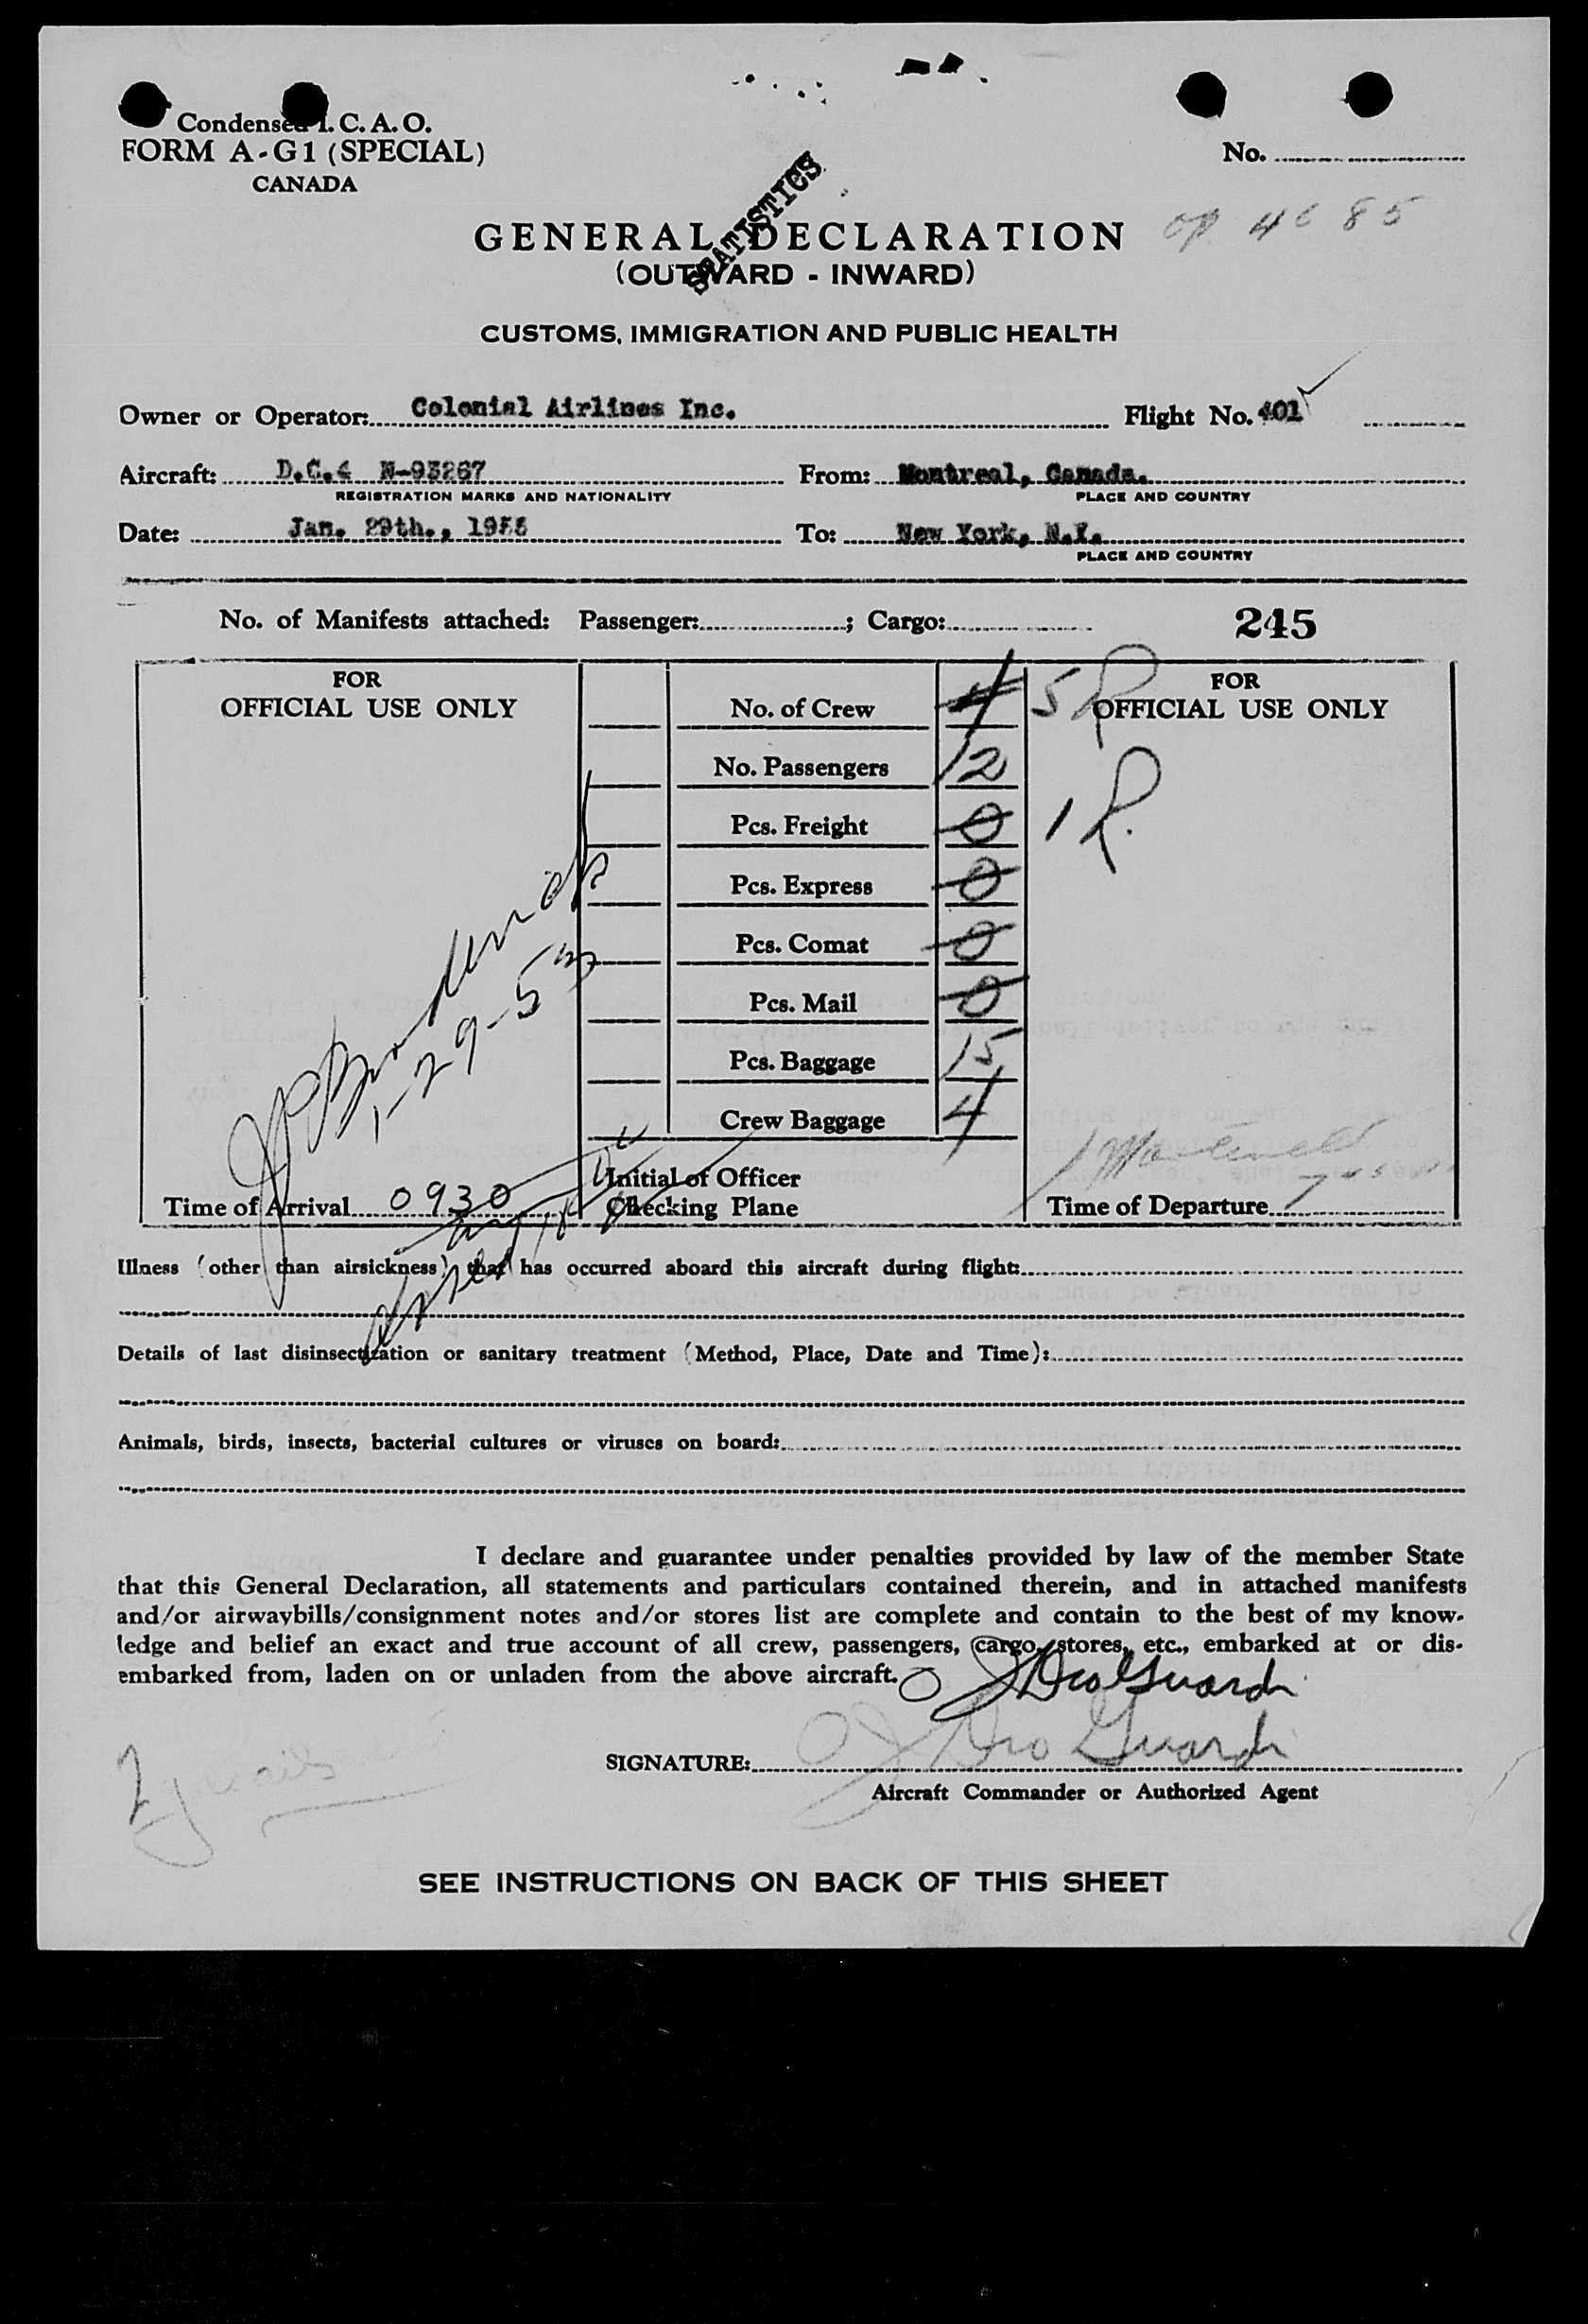 Condensed I. C. A. O.
FORM A-G1 (SPECIAL)
CANADA
No.
STATISTICS
GENERAL DECLARATION
(OUTWARD - INWARD)
CUSTOMS, IMMIGRATION AND PUBLIC HEALTH
Owner or Operator: Colonial Airlines Inc. Flight No. 401
Aircraft: D.C.4 N-93267 From: Montreal, Canada.
REGISTRATION MARKS AND NATIONALITY PLACE AND COUNTRY
Date: Jan. 29th., 1955 To: New York, N.Y.
PLACE AND COUNTRY
No. of Manifests attached: Passenger: ; Cargo: 245
FOR
OFFICIAL USE ONLY
No. of Crew 4 5
FOR
OFFICIAL USE ONLY
No. Passengers 12
Pcs. Freight 0 1 R.
Pcs. Express 0
Pcs. Comat 0
Pcs. Mail 0
Pcs. Baggage 15
Crew Baggage 4
1-29-55
Initial of Officer
Time of Arrival 0930 Checking Plane Time of Departure
Illness (other than airsickness) that has occurred aboard this aircraft during flight:
Details of last disinsectization or sanitary treatment (Method, Place, Date and Time):
Animals, birds, insects, bacterial cultures or viruses on board:
I declare and guarantee under penalties provided by law of the member State
that this General Declaration, all statements and particulars contained therein, and in attached manifests
and/or airwaybills/consignment notes and/or stores list are complete and contain to the best of my know-
ledge and belief an exact and true account of all crew, passengers, cargo, stores, etc., embarked at or dis-
embarked from, laden on or unladen from the above aircraft.
SIGNATURE:
Aircraft Commander or Authorized Agent
SEE INSTRUCTIONS ON BACK OF THIS SHEET